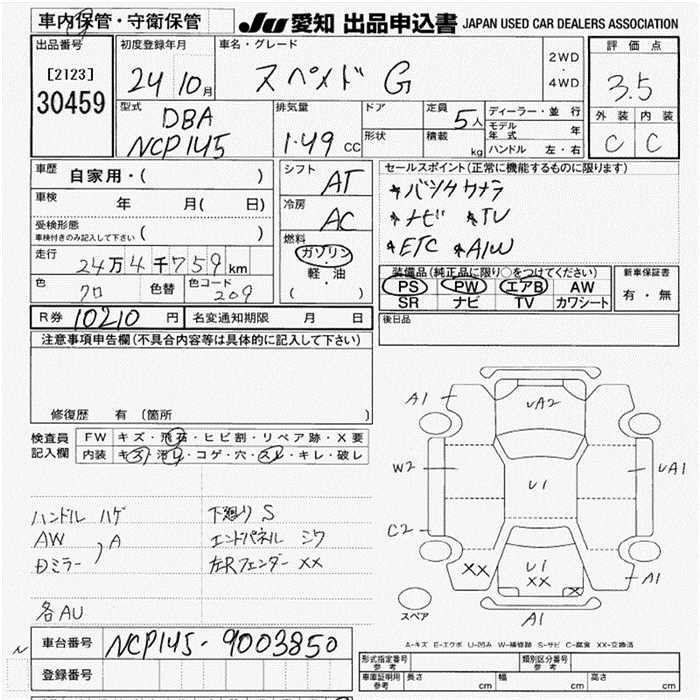 車内保管・守衛保管 JU 愛知 出品申込書 JAPAN USED CAR DEALERS ASSOCIATION
出品番号 初度登録年月 車名・グレード 評価点
[2123] 24年10月 スペイド G 2WD・4WD 3.5
30459
型式 排気量 ドア 定員 5人 ディーラー・並 行 外装 内装
DBA モデル年式 年
NCP145 1.49 CC 形状 積載 kg ハンドル 左・右 C C
車歴 自家用・( ) シフト AT セールスポイント(正常に機能するものに限ります)
車検 年 月( 日) 冷房 AC *バックカメラ
*ナビ *TV
受検形態 ( ) 燃料 *ETC *A/W
車検付きのみ記入して下さい
走行 24万4千759km ガソリン
軽・油
( )
装備品(純正品に限り○をつけてください) 新車保証書
PS PW エアB AW 有・無
SR ナビ TV カワシート
色 クロ 色替 色コード 209
R券 10210 円 名変通知期限 月 日 後日品
注意事項申告欄(不具合内容等は具体的に記入して下さい)
修復歴 有(箇所 )
検査員 FW キズ・飛石・ヒビ割・リペア跡・X要
記入欄 内装 キズ・汚レ・コゲ・穴・スレ・キレ・破レ
ハンドル ハゲ 下廻り S
AW エンドパネル シワ
ミラー 〉A 左Rフェンダー XX
各AU
車台番号 NCP145-9003850
登録番号
A1 UA2
W2 U1 UA1
C2
XX U1 XX A1
スペア A1
A-キズ E-エクボ U-凹み W-補修跡 S-サビ C-腐食 XX-交換済
形式指定番号 参考 類別区分番号 参考
車庫証明用 参考 長さ cm 幅 cm 高さ cm